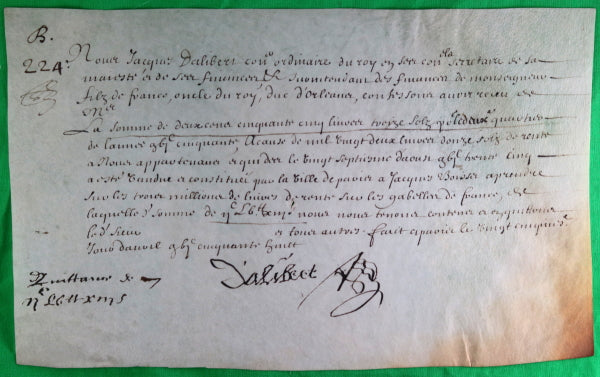 B.
224.
Nous Jacques Dalibert con.er ordinaire du roy en ses con.ls Secretaire de sa
maiesté et de ses finances & Surintendant des finances de monseigneur
filz de france, oncle du roy, duc d'Orleans, confessons avoir receu de
M.er
La somme de deux cens cinquante cinq livres treize solz p.r le deux.e quartier
de lannee gbj.c cinquante, A cause de mil vingt deux livres douze solz de rente
a Nous appartenans et qui des le vingt septiesme daoust gbj.c trente cinq
a esté Vendue et constituée par la Ville de paris a Jacques a prendre
sur les trois millions de livres de rente sur les gabelles de france, de
laquelle d. somme de ij.c lv.tt xiij.s nous nous tenons contens et quittons
le d. Sieur et tous autres. fait a paris le vingt cinquies.e
Jour davril gbj.c cinquante huict
Dalibert
Quittance de
ij.c lv.tt xiij s